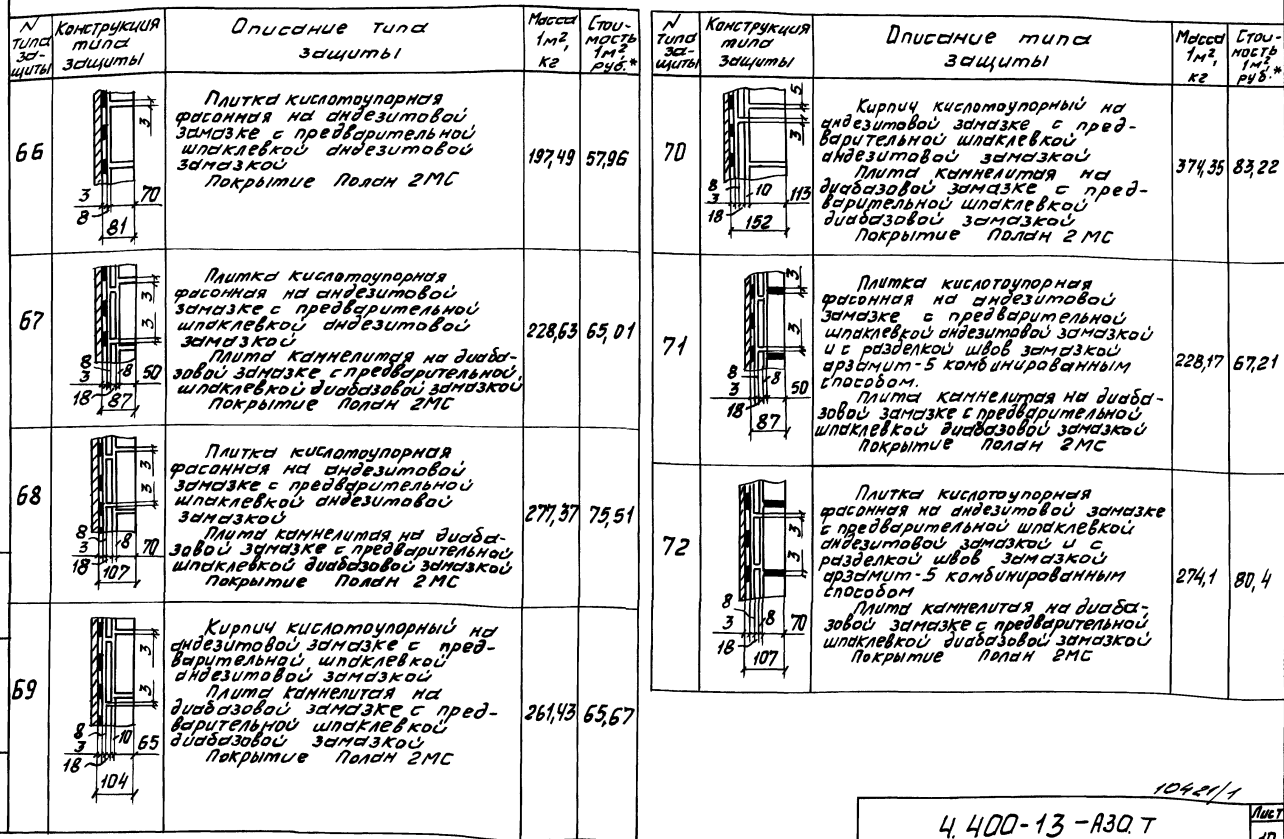 N типа за-щиты
Конструкция типа защиты
Описание типа защиты
Масса 1м², кг
Стои-мость 1м² руб.*
66
3
3
8
70
81
Плитка кислотоупорная
фасонная на андезитовой
замазке с предварительной
шпаклевкой андезитовой
замазкой
Покрытие Полан 2МС
197,49
57,96
67
3
3
8
3
18
8
50
87
Плитка кислотоупорная
фасонная на андезитовой
замазке с предварительной
шпаклевкой андезитовой
замазкой
Плита камнелитая на диаба-
зовой замазке с предварительной
шпаклевкой диабазовой замазкой
Покрытие Полан 2МС
228,63
65,01
68
3
3
8
3
18
8
70
107
Плитка кислотоупорная
фасонная на андезитовой
замазке с предварительной
шпаклевкой андезитовой
замазкой
Плита камнелитая на диаба-
зовой замазке с предварительной
шпаклевкой диабазовой замазкой
Покрытие Полан 2МС
277,37
75,51
69
3
3
8
3
18
10
65
104
Кирпич кислотоупорный на
андезитовой замазке с пред-
варительной шпаклевкой
андезитовой замазкой
Плита камнелитая на
диабазовой замазке с пред-
варительной шпаклевкой
диабазовой замазкой
Покрытие Полан 2МС
261,43
65,67
N типа за-щиты
Конструкция типа защиты
Описание типа защиты
Масса 1м², кг
Стои-мость 1м² руб.*
70
5
3
8
3
18
10
113
152
Кирпич кислотоупорный на
андезитовой замазке с пред-
варительной шпаклевкой
андезитовой замазкой
Плита камнелитая на
диабазовой замазке с пред-
варительной шпаклевкой
диабазовой замазкой
Покрытие Полан 2МС
374,35
83,22
71
3
3
8
3
18
8
50
87
Плитка кислотоупорная
фасонная на андезитовой
замазке с предварительной
шпаклевкой андезитовой замазкой
и с разделкой швов замазкой
арзамит-5 комбинированным
способом.
Плита камнелитая на диаба-
зовой замазке с предварительной
шпаклевкой диабазовой замазкой
Покрытие Полан 2МС
228,17
67,21
72
3
3
8
3
18
8
70
107
Плитка кислотоупорная
фасонная на андезитовой замазке
с предварительной шпаклевкой
андезитовой замазкой и с
разделкой швов замазкой
арзамит-5 комбинированным
способом
Плита камнелитая на диаба-
зовой замазке с предварительной
шпаклевкой диабазовой замазкой
Покрытие Полан 2МС
274,1
80,4
10421/1
4.400-13-АЗО.Т
Лист